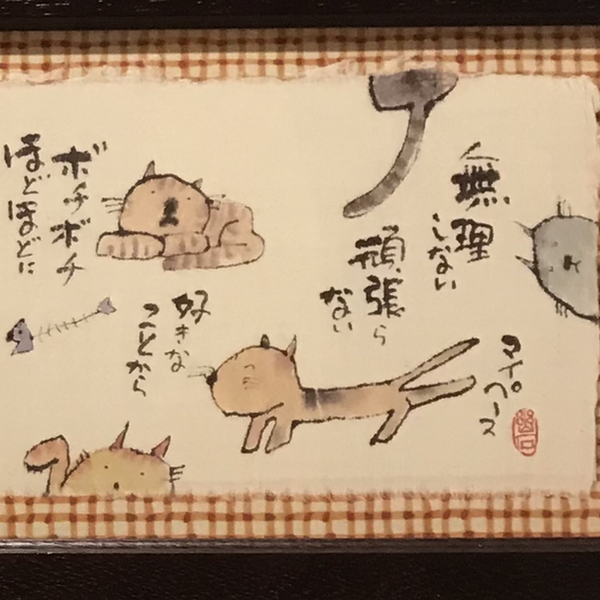 無理
しない
頑張ら
ない
マイペース
好きな
ことから
ボチボチ
ほどほどに